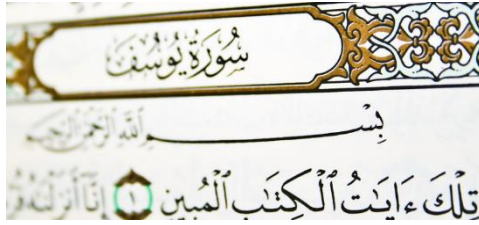 سُورَةُ يُوسُفَ
بِسْمِ ٱللَّهِ ٱلرَّحْمَٰنِ ٱلرَّحِيمِ
تِلْكَ ءَايَٰتُ ٱلْكِتَٰبِ ٱلْمُبِينِ ١ إِنَّآ أَنزَلْنَٰهُ